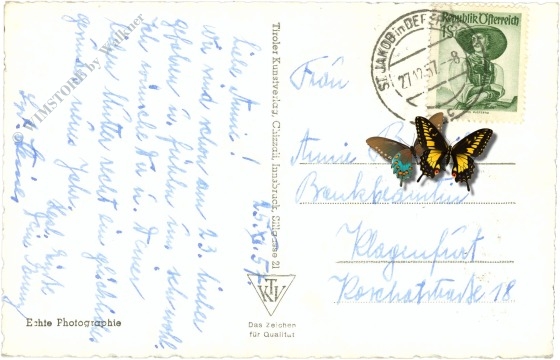 WIMSTORE by Walkner
25.XI.57.
Liebe Annie!
Wir sind schon am 23. hieher
gefahren u. fühlen uns sehr wohl
Ich wünsche Dir u. Deiner
lieben Mutter recht ein glückliches
gesundes neues Jahr
Echte Photographie
Tiroler Kunstverlag, Chizzali, Innsbruck, Sillgasse 21
TKV
Das Zeichen
für Qualität
Republik Österreich
ST. JAKOB in DEF
27.12.57.--8
Frau
Annie
Bankbeamtin
Klagenfurt
Koschatstraße 18